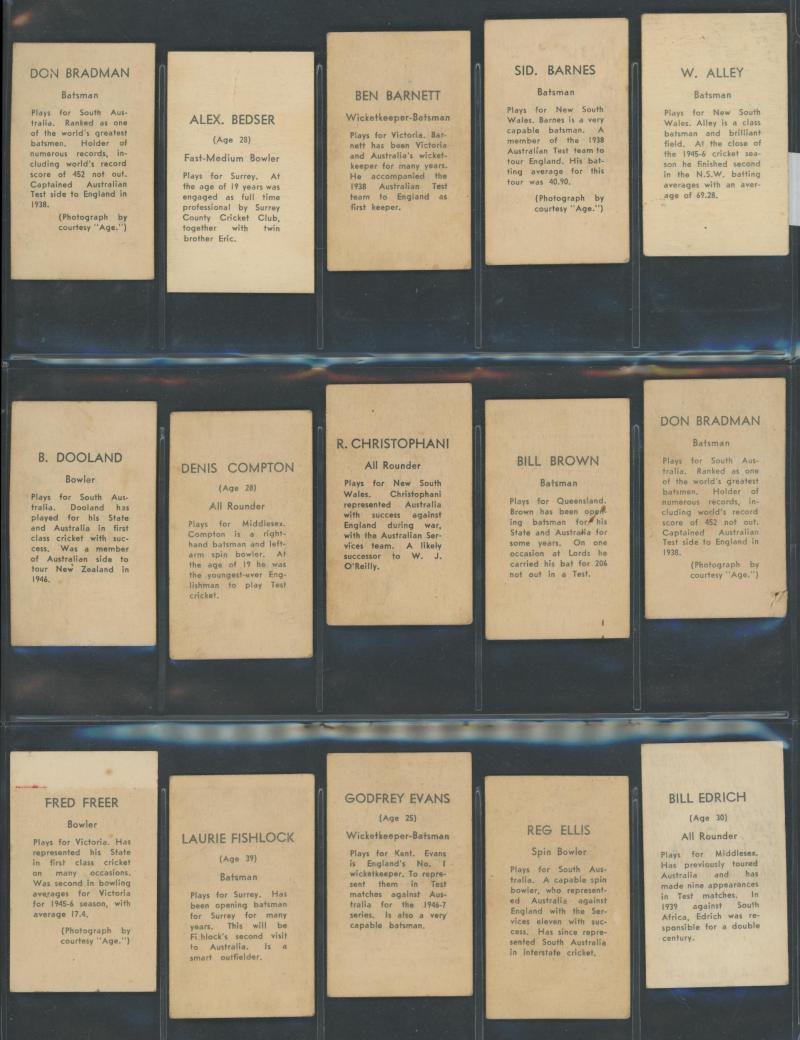 DON BRADMAN
Batsman
Plays for South Aus-
tralia. Ranked as one
of the world's greatest
batsmen. Holder of
numerous records, in-
cluding world's record
score of 452 not out.
Captained Australian
Test side to England in
1938.
(Photograph by
courtesy "Age.")
ALEX. BEDSER
(Age 28)
Fast-Medium Bowler
Plays for Surrey. At
the age of 19 years was
engaged as full time
professional by Surrey
County Cricket Club,
together with twin
brother Eric.
BEN BARNETT
Wicketkeeper-Batsman
Plays for Victoria. Bar-
nett has been Victoria
and Australia's wicket-
keeper for many years.
He accompanied the
1938 Australian Test
team to England as
first keeper.
SID. BARNES
Batsman
Plays for New South
Wales. Barnes is a very
capable batsman. A
member of the 1938
Australian Test team to
tour England. His bat-
ting average for this
tour was 40.90.
(Photograph by
courtesy "Age.")
W. ALLEY
Batsman
Plays for New South
Wales. Alley is a class
batsman and brilliant
field. At the close of
the 1945-6 cricket sea-
son he finished second
in the N.S.W. batting
averages with an aver-
age of 69.28.
B. DOOLAND
Bowler
Plays for South Aus-
tralia. Dooland has
played for his State
and Australia in first
class cricket with suc-
cess. Was a member
of Australian side to
tour New Zealand in
1946.
DENIS COMPTON
(Age 28)
All Rounder
Plays for Middlesex.
Compton is a right-
hand batsman and left-
arm spin bowler. At
the age of 19 he was
the youngest-ever Eng-
lishman to play Test
cricket.
R. CHRISTOPHANI
All Rounder
Plays for New South
Wales. Christophani
represented Australia
with success against
England during war,
with the Australian Ser-
vices team. A likely
successor to W. J.
O'Reilly.
BILL BROWN
Batsman
Plays for Queensland.
Brown has been opening
batsman for his
State and Australia for
some years. On one
occasion at Lords he
carried his bat for 206
not out in a Test.
DON BRADMAN
Batsman
Plays for South Aus-
tralia. Ranked as one
of the world's greatest
batsmen. Holder of
numerous records, in-
cluding world's record
score of 452 not out.
Captained Australian
Test side to England in
1938.
(Photograph by
courtesy "Age.")
FRED FREER
Bowler
Plays for Victoria. Has
represented his State
in first class cricket
on many occasions.
Was second in bowling
averages for Victoria
for 1945-6 season, with
average 17.4.
(Photograph by
courtesy "Age.")
LAURIE FISHLOCK
(Age 39)
Batsman
Plays for Surrey. Has
been opening batsman
for Surrey for many
years. This will be
Fishlock's second visit
to Australia. Is a
smart outfielder.
GODFREY EVANS
(Age 25)
Wicketkeeper-Batsman
Plays for Kent. Evans
is England's No. 1
wicketkeeper. To repre-
sent them in Test
matches against Aus-
tralia for the 1946-7
series. Is also a very
capable batsman.
REG ELLIS
Spin Bowler
Plays for South Aus-
tralia. A capable spin
bowler, who represent-
ed Australia against
England with the Ser-
vices eleven with suc-
cess. Has since repre-
sented South Australia
in interstate cricket.
BILL EDRICH
(Age 30)
All Rounder
Plays for Middlesex.
Has previously toured
Australia and has
made nine appearances
in Test matches. In
1939 against South
Africa, Edrich was re-
sponsible for a double
century.